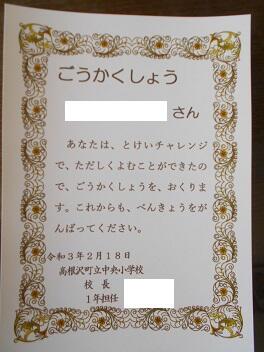 ごうかくしょう
さん
あなたは、とけいチャレンジ
で、ただしくよむことができたの
で、ごうかくしょうを、おくりま
す。これからも、べんきょうをが
んばってください。
令和３年２月１８日
高根沢町立中央小学校
校　長
１年担任